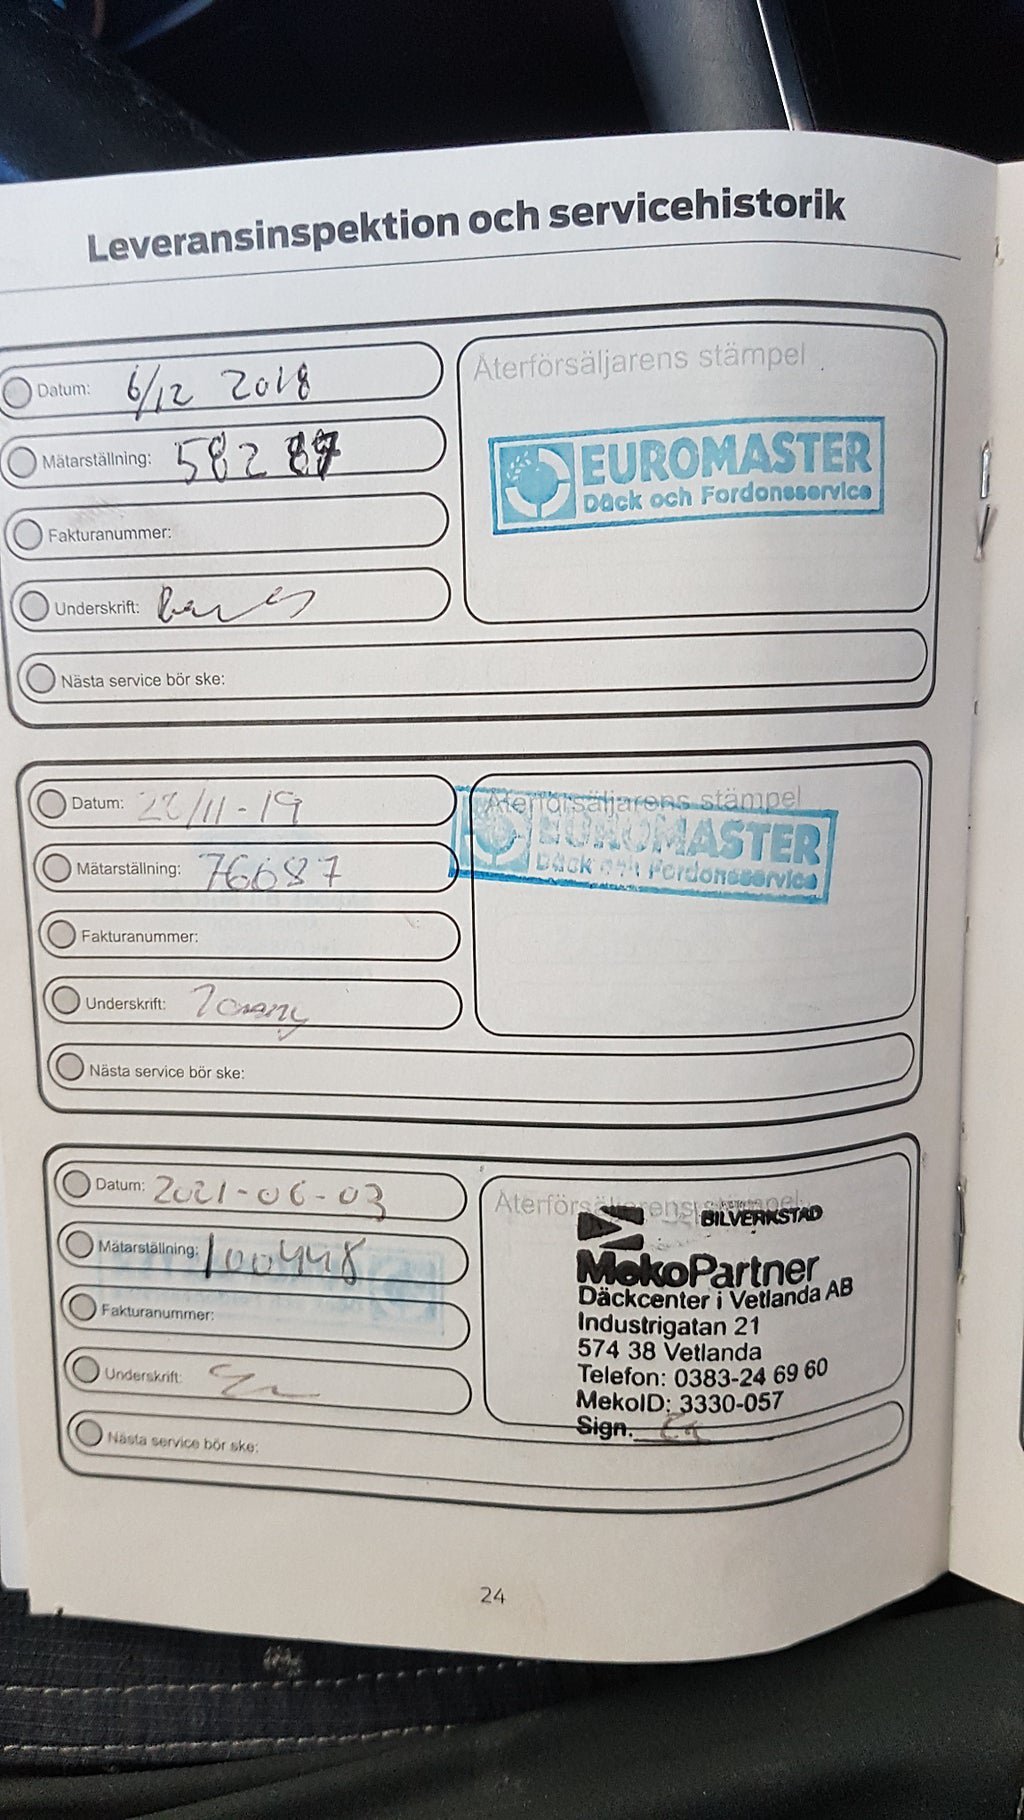 Leveransinspektion och servicehistorik
Datum: 6/12 2018
Återförsäljarens stämpel
Mätarställning: 58287
EUROMASTER
Däck och Fordonsservice
Fakturanummer:
Underskrift:
Nästa service bör ske:
Datum: 22/11-19
Återförsäljarens stämpel
EUROMASTER
Däck och Fordonsservice
Mätarställning: 76687
Fakturanummer:
Underskrift: Tommy
Nästa service bör ske:
Datum: 2021-06-03
Återförsäljarens stämpel
BILVERKSTAD
Mätarställning: 100448
MekoPartner
Däckcenter i Vetlanda AB
Fakturanummer:
Industrigatan 21
574 38 Vetlanda
Underskrift:
Telefon: 0383-24 69 60
MekoID: 3330-057
Sign.
Nästa service bör ske:
24